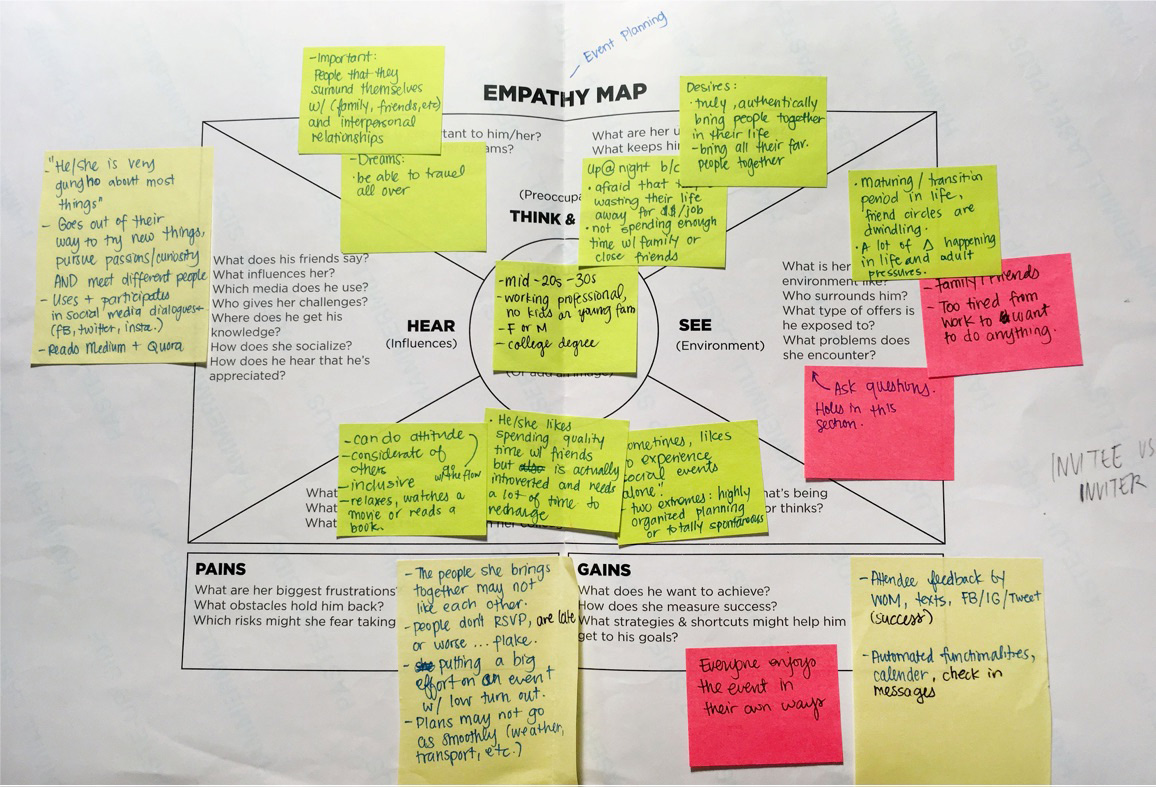 Event Planning
EMPATHY MAP
-Important:
People that they
surround themselves
w/ (family, friends, etc)
and interpersonal
relationships
tant to him/her?
ams?
-Dreams:
• be able to travel
all over
What are her u
What keeps him
Desires:
• truly, authentically
bring people together
in their life
- bring all their fav.
people together
Up@ night b/c
• afraid that
wasting their life
away for $$/job
• not spending enough
time w/ family or
close friends
(Preoccupa
THINK &
"He/she is very
gung ho about most
things"
- Goes out of their
way to try new things,
pursue passions/curiosity
AND meet different people
- Uses + participates
in social media dialogues
(fB, twitter, insta.)
- Reads Medium + Quora
What does his friends say?
What influences her?
Which media does he use?
Who gives her challenges?
Where does he get his
knowledge?
How does she socialize?
How does he hear that he's
appreciated?
HEAR
(Influences)
- mid -20s -30s
- working professional,
no kids or young fam
- F or M
- college degree
(Or add an image)
SEE
(Environment)
What is her
environment like?
Who surrounds him?
What type of offers is
he exposed to?
What problems does
she encounter?
• Maturing / transition
period in life,
friend circles are
dwindling.
• A lot of Δ happening
in life and adult
pressures.
- family/friends
- Too tired from
work to want
to do anything.
Ask questions.
Holes in this
section.
INVITEE VS
INVITER
- can do attitude
- considerate of
others
w/ the flow
- inclusive
- relaxes, watches a
movie or reads a
book.
• He/she likes
spending quality
time w/ friends
but is actually
introverted and needs
a lot of time to
recharge
ometimes, likes
o experience
social events
alone"
- two extremes: highly
organized planning
or totally spontaneous
What
What
What
hat's being
or thinks?
PAINS
What are her biggest frustrations
What obstacles hold him back?
Which risks might she fear taking
- The people she brings
together may not
like each other.
- people don't RSVP, are late
or worse ... flake.
- putting a big
effort on an event
w/ low turn out.
- Plans may not go
as smoothly (weather,
transport, etc.)
GAINS
What does he want to achieve?
How does she measure success?
What strategies & shortcuts might help him
get to his goals?
Everyone enjoys
the event in
their own ways
- Attendee feedback by
WOM, texts, FB/IG/Tweet
(success)
- Automated functionalities,
calender, check in
messages